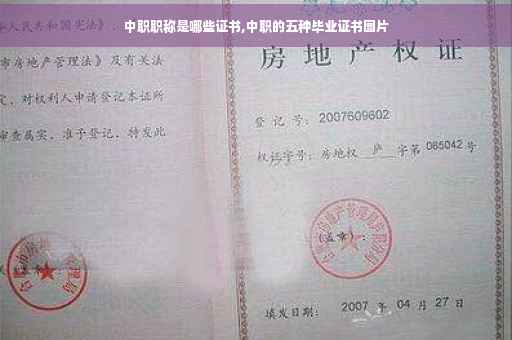 中职职称是哪些证书,中职的五种毕业证书图片
人民共和国宪法》、
市房地产管理法》及有关法
定，对权利人申请登记本证所
审查属实，准予登记，特发此
房地产权证
登记号：2007609602
权证字号：房地权 庐 字第 085042 号
（盖章）：
填发日期：2007 年 04 月 27 日